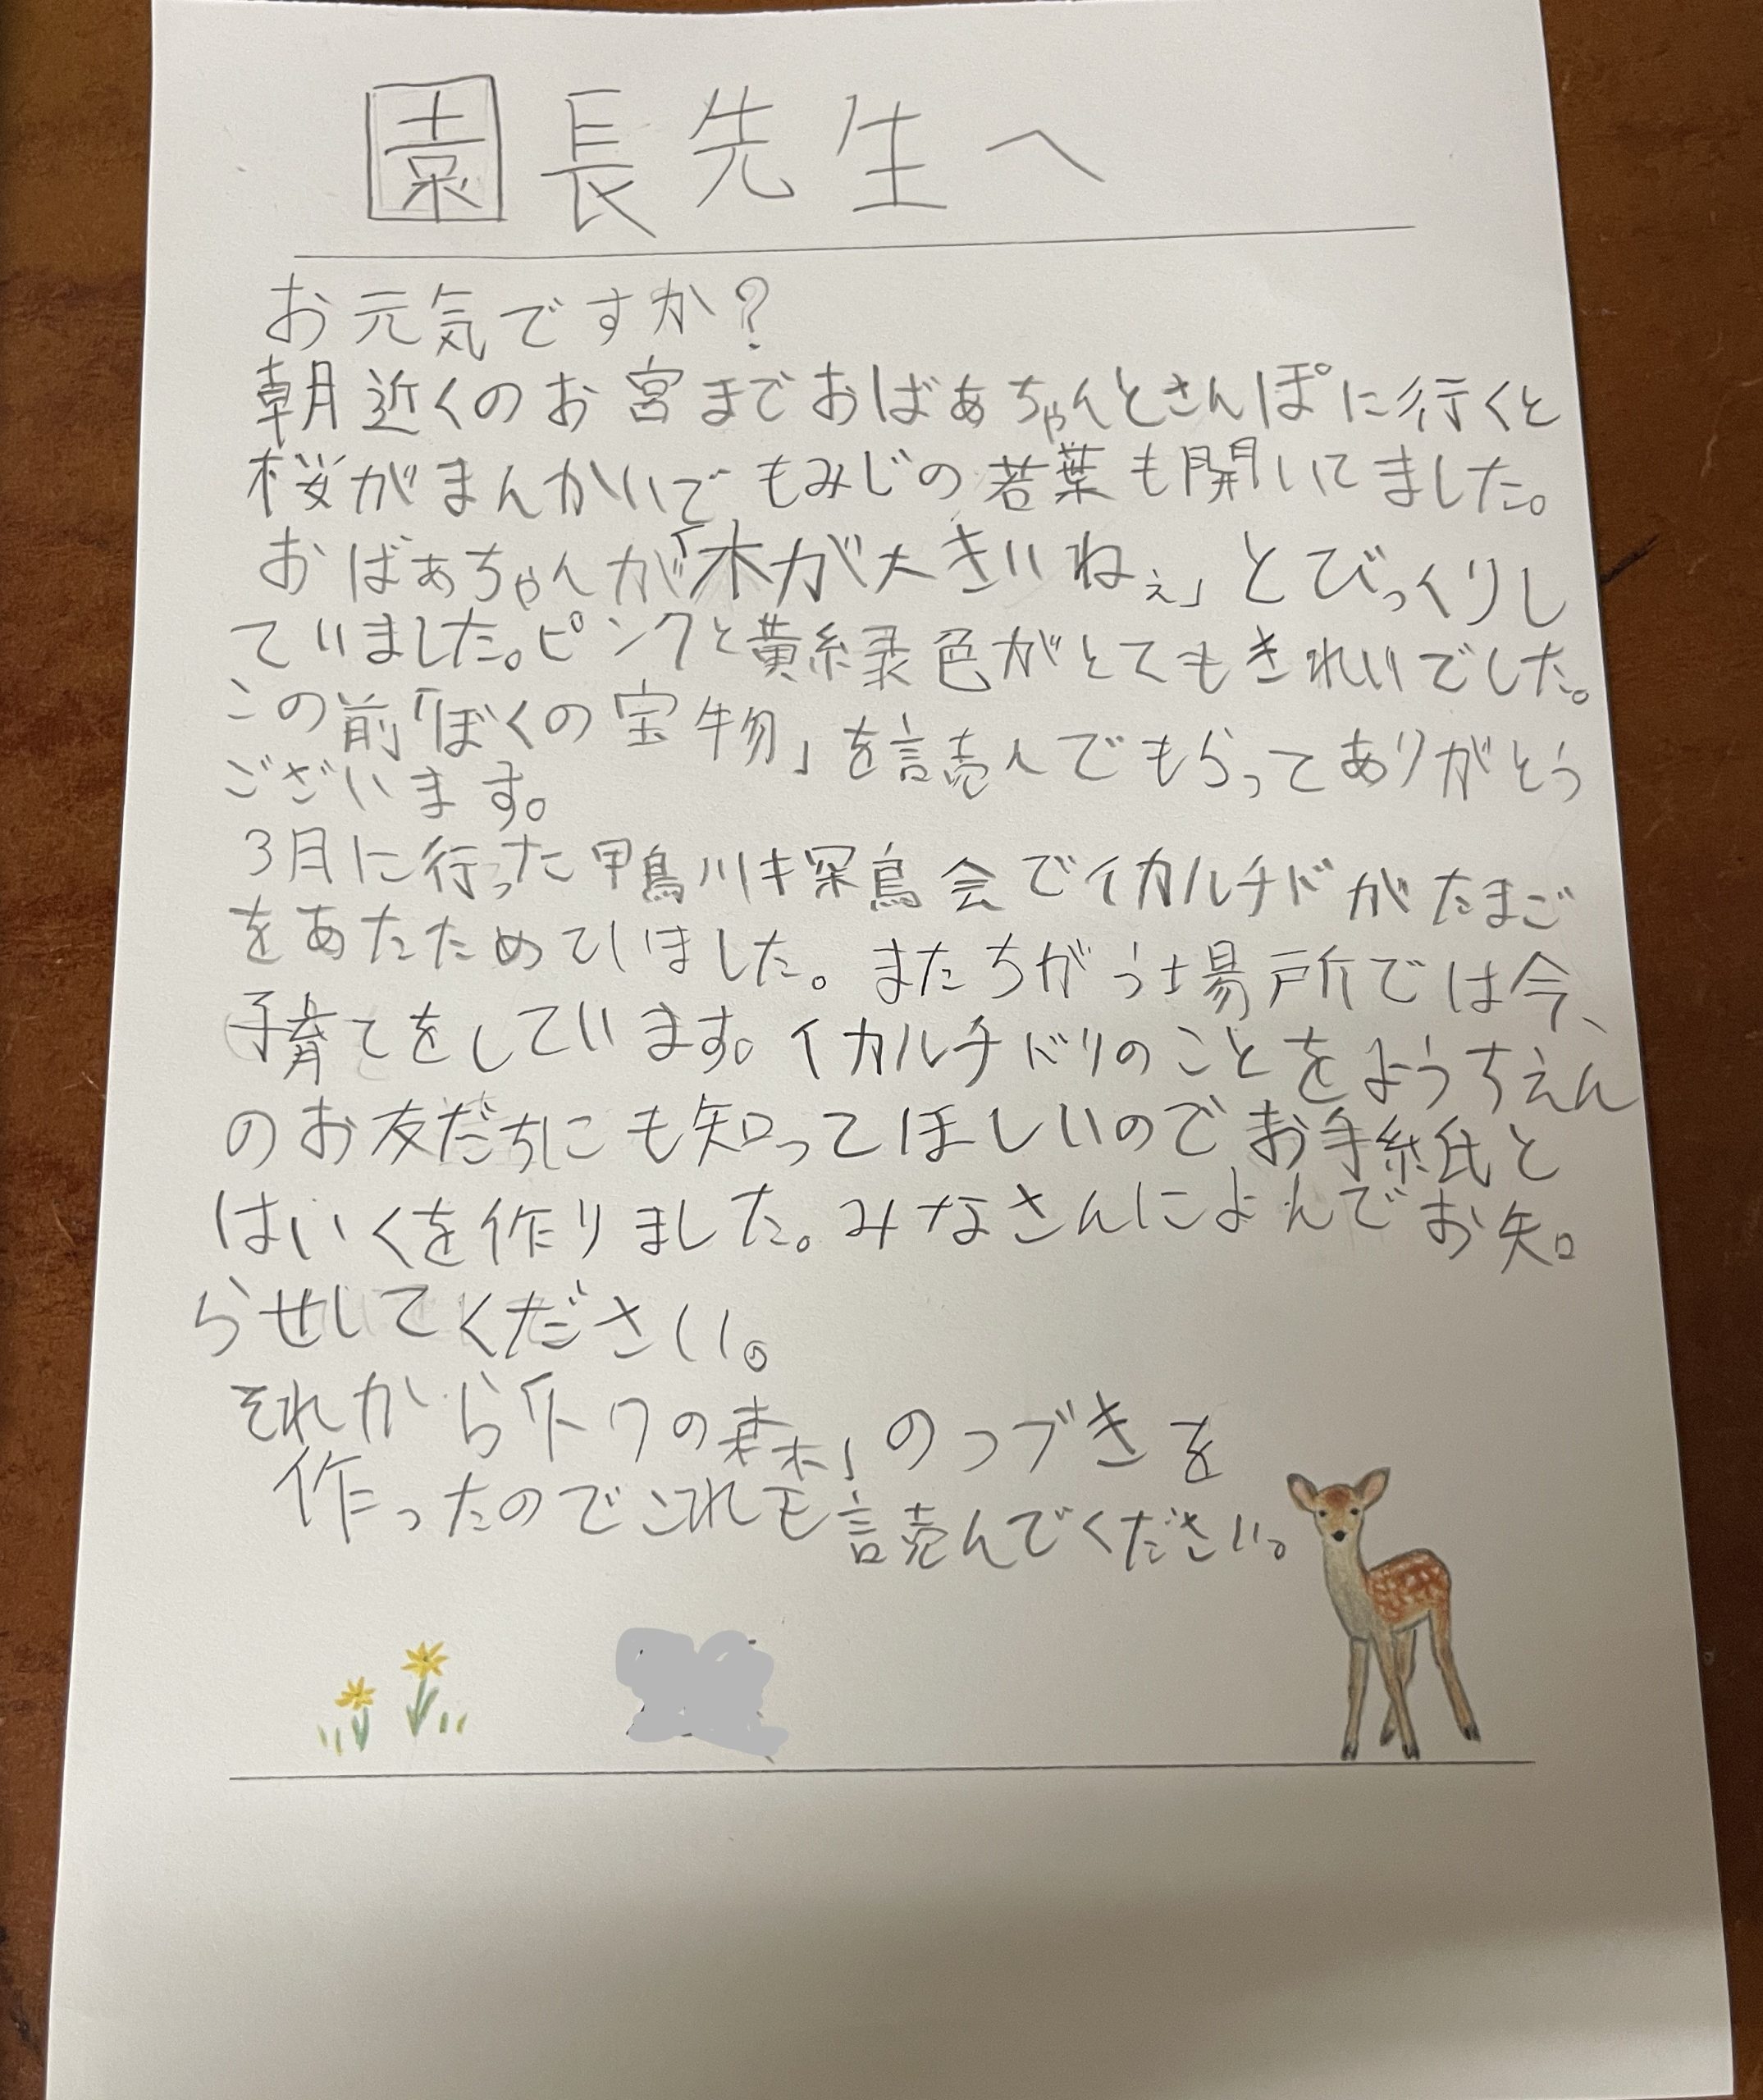 園長先生へ
お元気ですか?
朝近くのお宮までおばあちゃんとさんぽに行くと
桜がまんかいでもみじの若葉も開いてました。
おばぁちゃんが「木が大きいねぇ」とびっくりし
ていました。ピンクと黄緑色がとてもきれいでした。
この前「ぼくの宝物」を読んでもらってありがとう
ございます。
3月に行った鴨川探鳥会でイカルチドがたまご
をあたためていました。またちがう場所では今、
子育てをしています。イカルチドリのことをようちえん
のお友だちにも知ってほしいのでお手紙と
はいくを作りました。みなさんによんでお知
らせしてください。
それから「トワの森」のつづきを
作ったのでこれも読んでください。